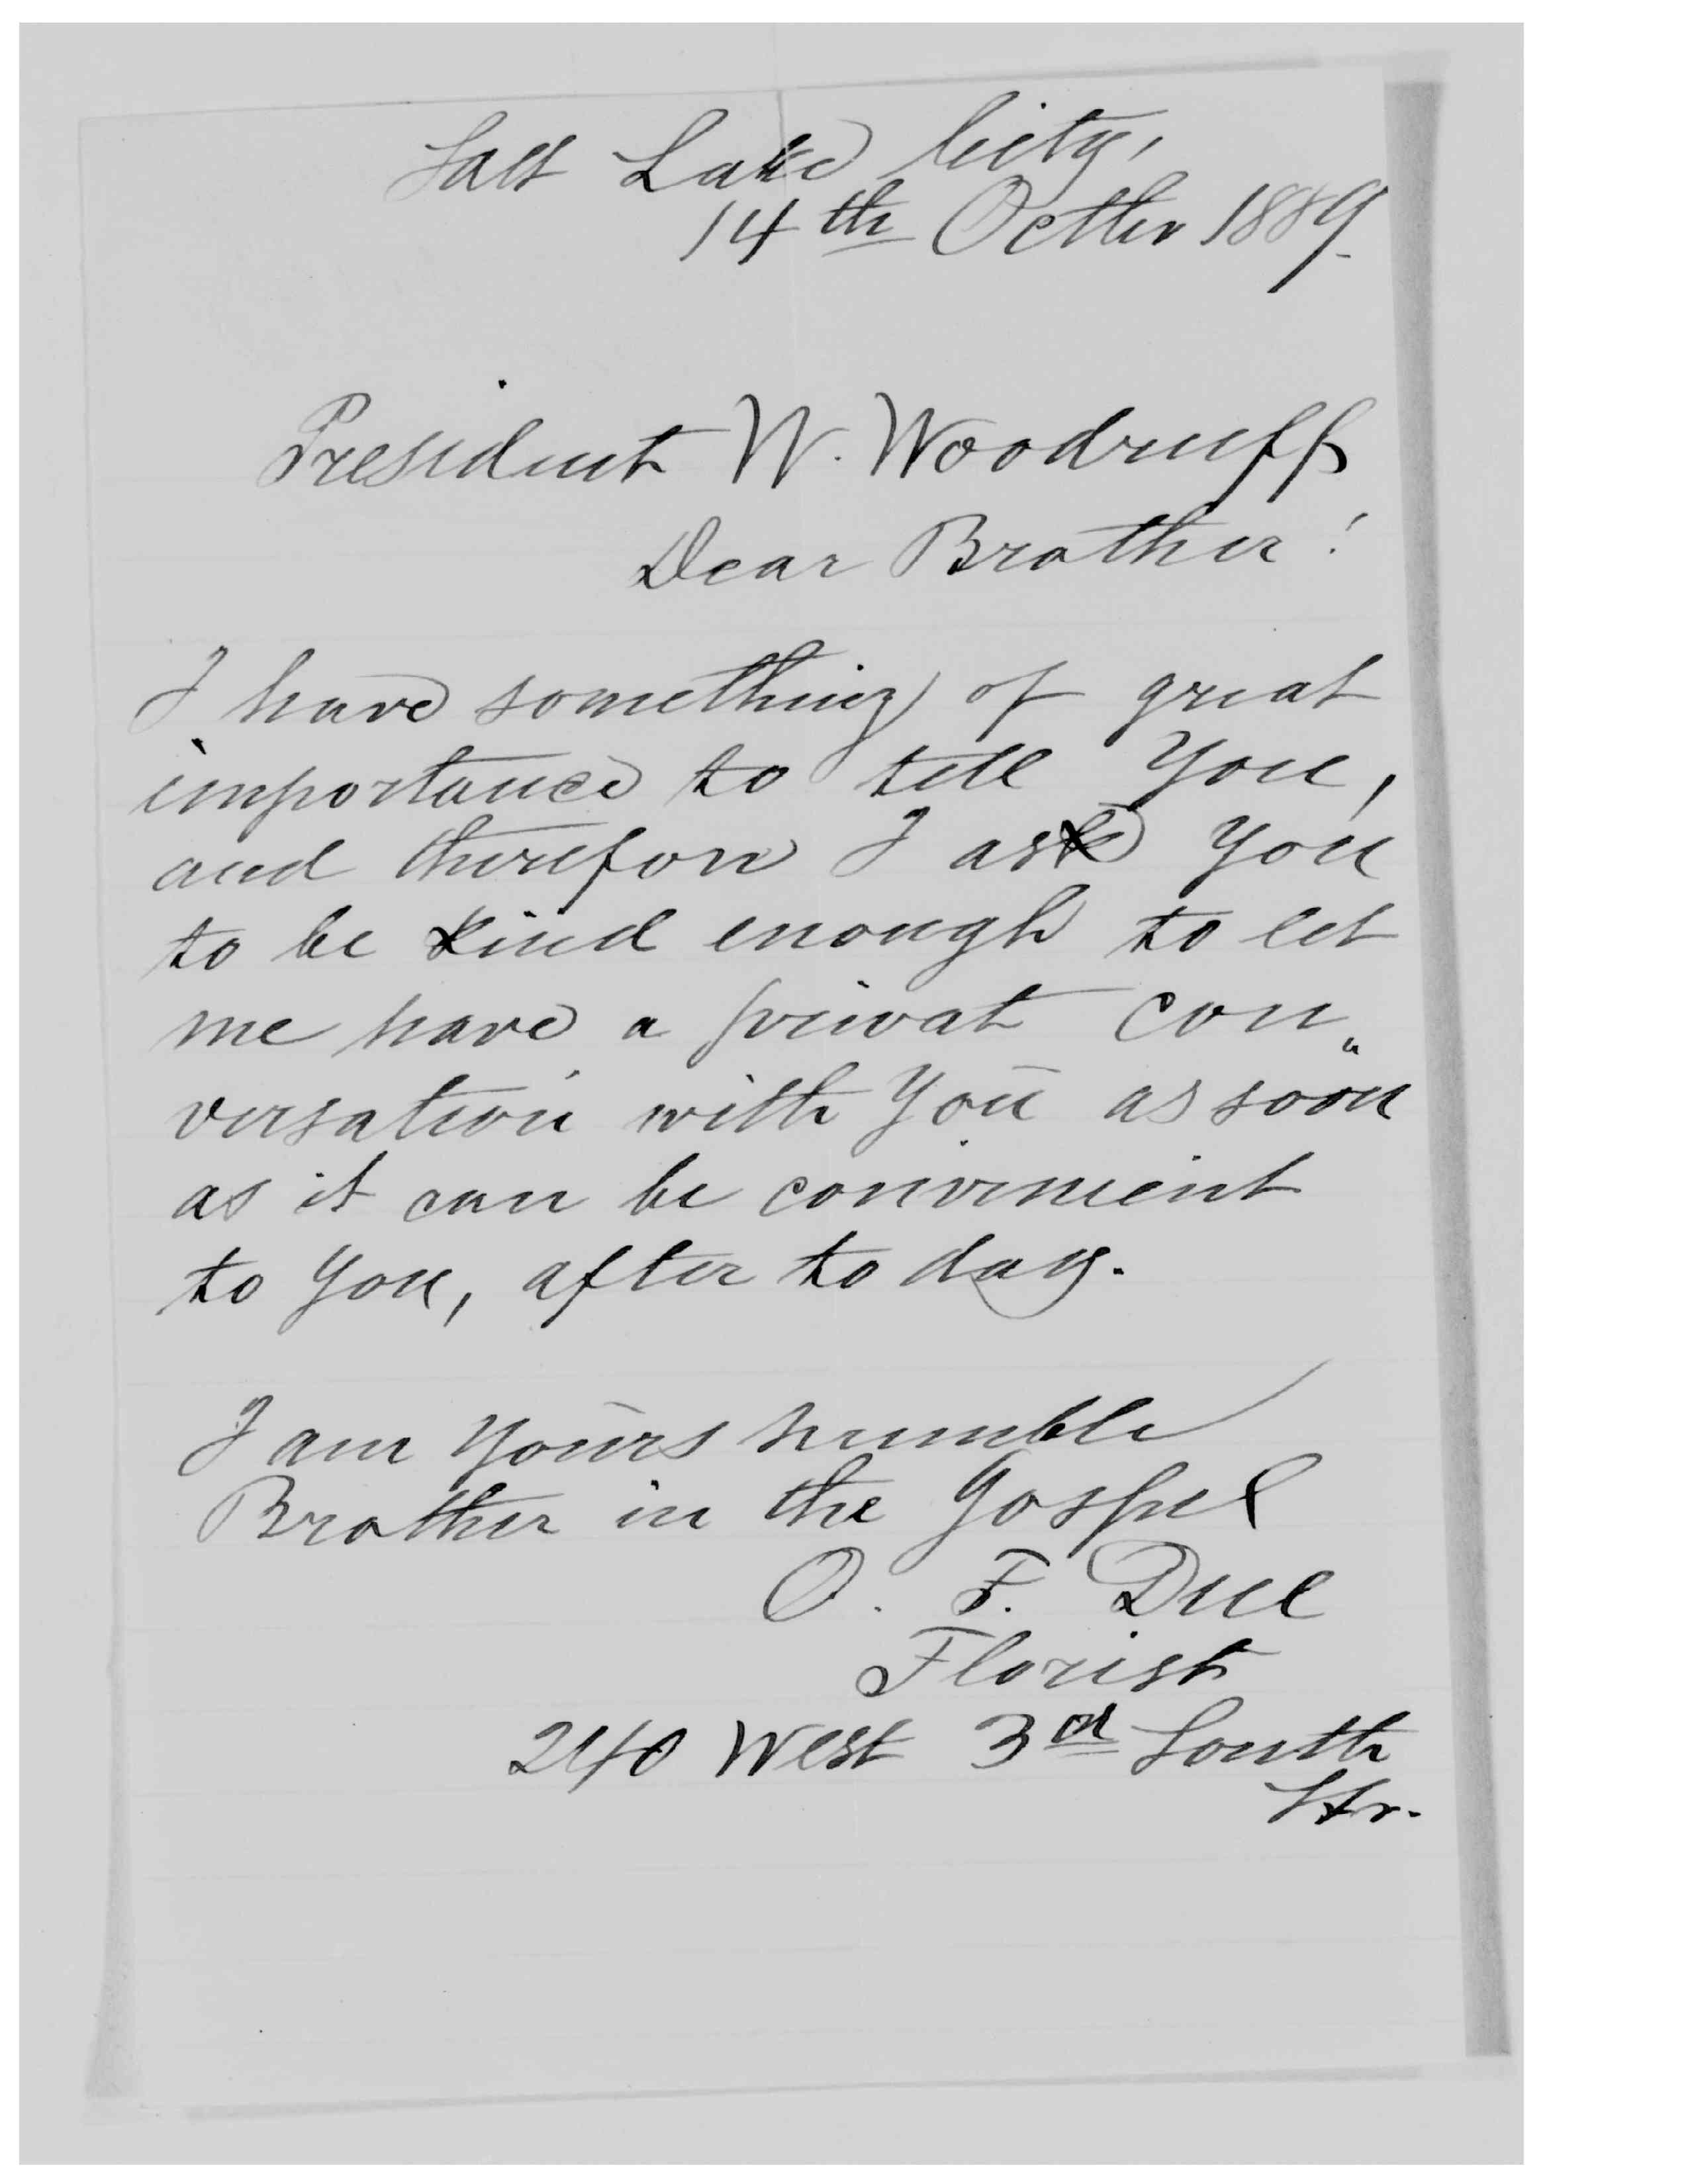 Salt Lake City,
14th Octber 1889.
President W. Woodruff
Dear Brother!
I have something of great
importance to tell You,
and therefore I ask You
to be kind enough to let
me have a privat con„
versation with You as soon
as it can be convenient
to You, after to day.
I am Yours humble
Brother in the Gospel
O. F. Due
Florist
240 West 3rd South
Str.